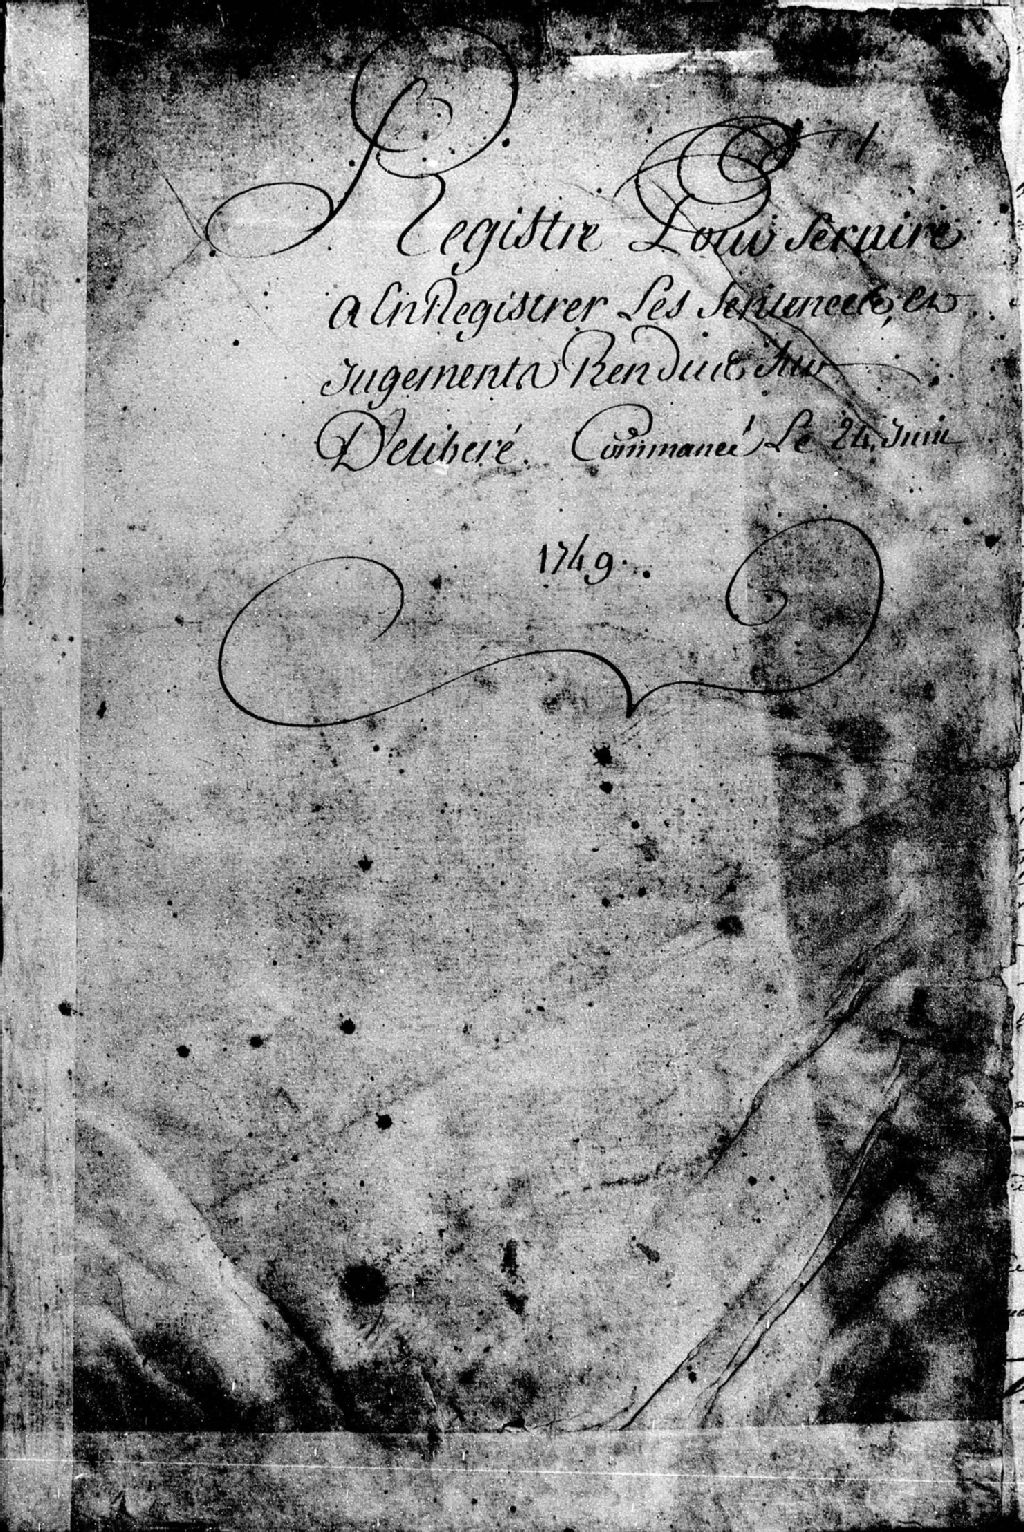 Registre Pour Servire
a EnRegistrer Les Sentences, et
Jugements Rendus Sur
Deliberé. Commancé Le 24. Juin
1749.